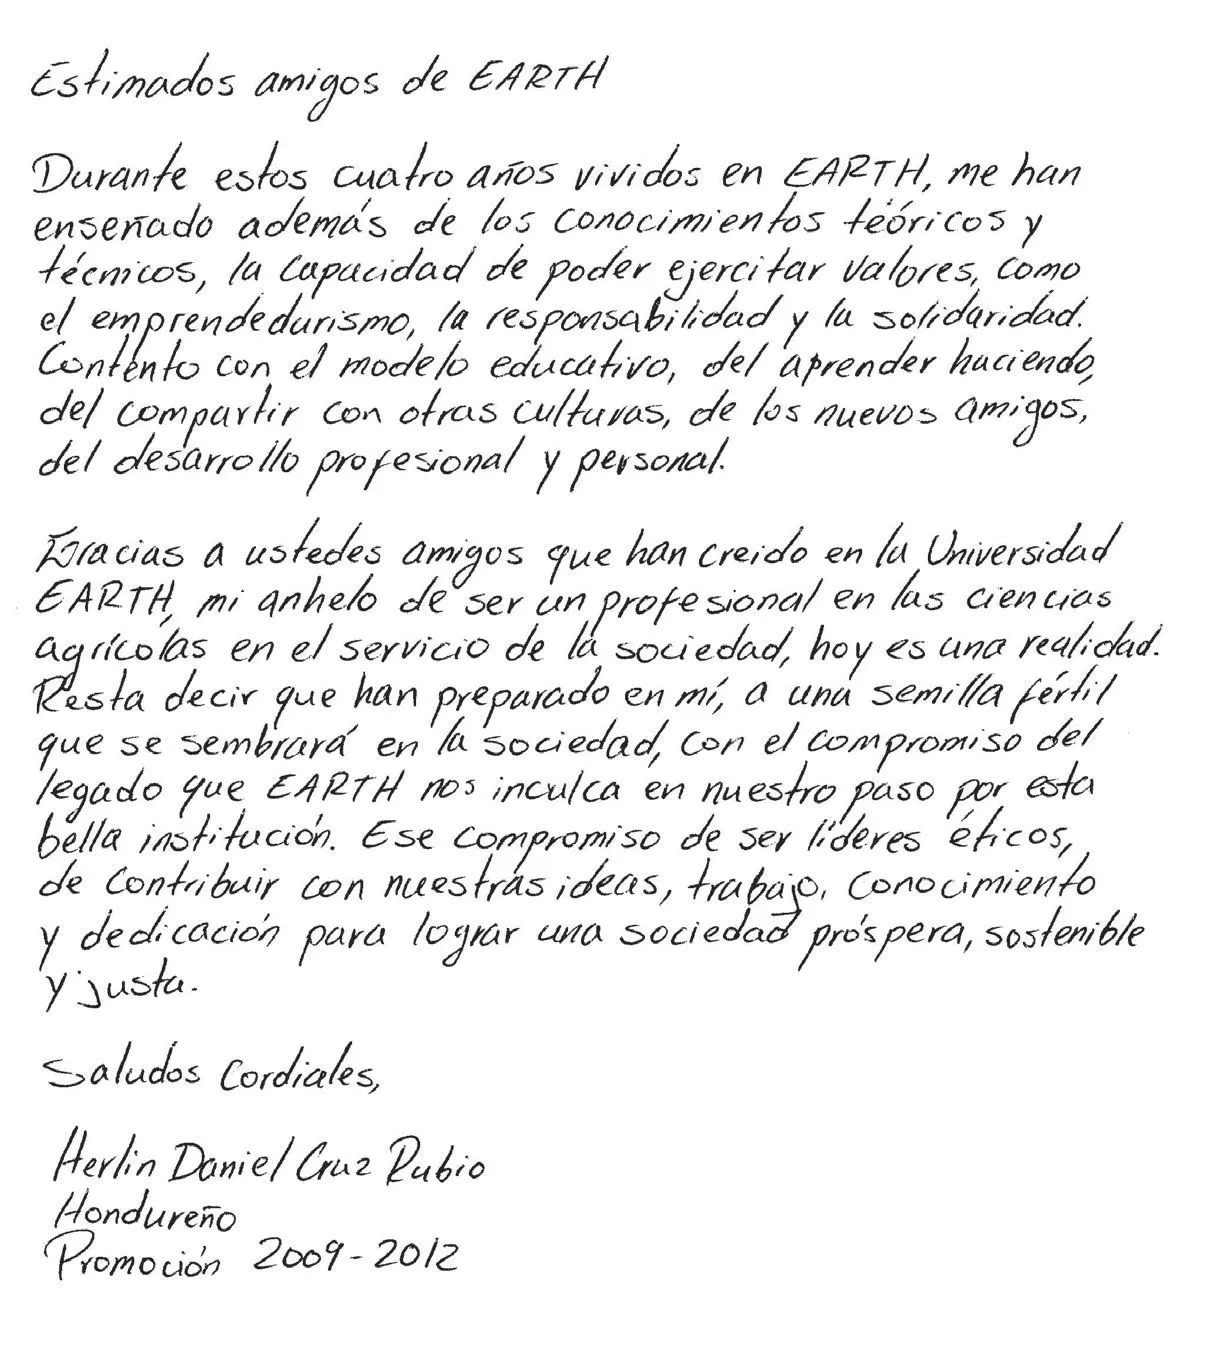 Estimados amigos de EARTH
Durante estos cuatro años vividos en EARTH, me han
enseñado además de los conocimientos teóricos y
técnicos, la capacidad de poder ejercitar valores, como
el emprendedurismo, la responsabilidad y la solidaridad.
Contento con el modelo educativo, del aprender haciendo,
del compartir con otras culturas, de los nuevos amigos,
del desarrollo profesional y personal.
Gracias a ustedes amigos que han creido en la Universidad
EARTH, mi anhelo de ser un profesional en las ciencias
agrícolas en el servicio de la sociedad, hoy es una realidad.
Resta decir que han preparado en mí, a una semilla fértil
que se sembrará en la sociedad, con el compromiso del
legado que EARTH nos inculca en nuestro paso por esta
bella institución. Ese compromiso de ser líderes éticos,
de contribuir con nuestras ideas, trabajo, conocimiento
y dedicación para lograr una sociedad próspera, sostenible
y justa.
Saludos Cordiales,
Herlin Daniel Cruz Rubio
Hondureño
Promoción 2009-2012